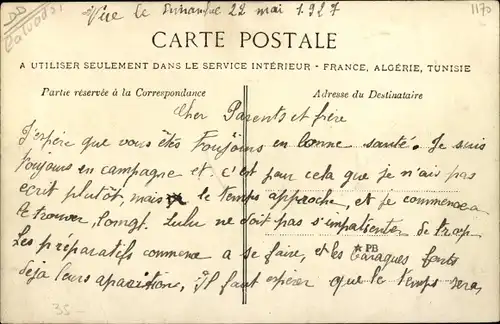 DD
Calvados
Vire le Dimanche 22 mai 1927
1170
CARTE POSTALE
A UTILISER SEULEMENT DANS LE SERVICE INTÉRIEUR - FRANCE, ALGÉRIE, TUNISIE
Partie réservée à la Correspondance
Adresse du Destinataire
Cher Parents et frère
J'espère que vous êtes Toujours en bonne santé. Je suis
toujours en campagne et c'est pour cela que je n'ais pas
ecrit plutôt, mais le temps approche, et je commence a
le trouver longt. Lulu ne doit pas s'impatienter de trop
Les préparatifs commence a se faire, et les Baraques font
★PB
deja leurs aparitions, Il faut espérer que le temps sera,
35 -